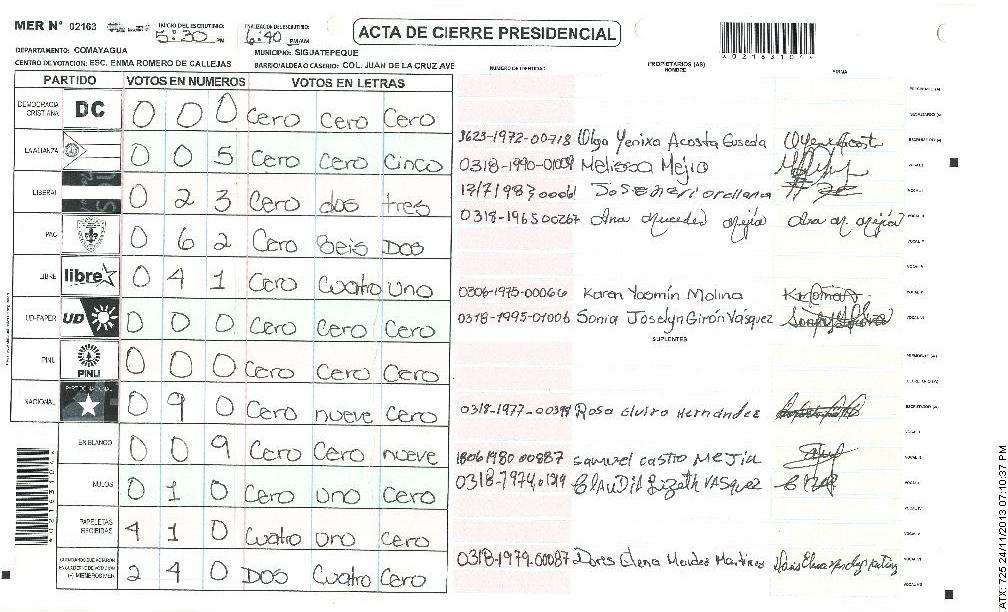 MER N° 02163 INICIO DEL ESCRUTINIO: 5:30 PM FINALIZACION DEL ESCRUTINIO: 6:40 PM/AM
ACTA DE CIERRE PRESIDENCIAL
DEPARTAMENTO: COMAYAGUA MUNICIPIO: SIGUATEPEQUE
CENTRO DE VOTACION: ESC. ENMA ROMERO DE CALLEJAS BARRIO/ALDEA O CASERIO: COL. JUAN DE LA CRUZ AVE
NUMERO DE IDENTIDAD PROPIETARIOS (AS) NOMBRE FIRMA
PARTIDO VOTOS EN NUMEROS VOTOS EN LETRAS
DEMOCRACIA CRISTIANA DC 0 0 0 Cero Cero Cero
LA ALIANZA 0 0 5 Cero Cero Cinco
LIBERAL 0 2 3 Cero dos tres
PAC 0 6 2 Cero Seis Dos
LIBRE libre 0 4 1 Cero Cuatro Uno
UD-FAPER UD 0 0 0 Cero Cero Cero
PINU PINU 0 0 0 Cero Cero Cero
NACIONAL 0 9 0 Cero nueve Cero
EN BLANCO 0 0 9 Cero Cero nueve
NULOS 0 1 0 Cero uno Cero
PAPELETAS RECIBIDAS 4 1 0 Cuatro uno cero
CIUDADANOS QUE VOTARON EN CUADERNO DE VOTACION (+) MIEMBROS MER 2 4 0 DOS Cuatro Cero
Olga Yenixa Acosta
0318-1990-01009 Melissa Mejia
Jose Meri Orellana
0318-1965 00267 Ana Mejia
0306-1975-00066 Karen Yasmin Molina
0318-1995-01006 Sonia Joselyn Girón Vásquez
SUPLENTES
Rosa Elvira Hernandez
1806 1980 00887 Samuel Castro Mejia
CLAUDIA Lizeth VASquez
0318-1979-00087 Doris Elena Mendez Martinez
ATX: 725 24/11/2013 07:10:37 PM